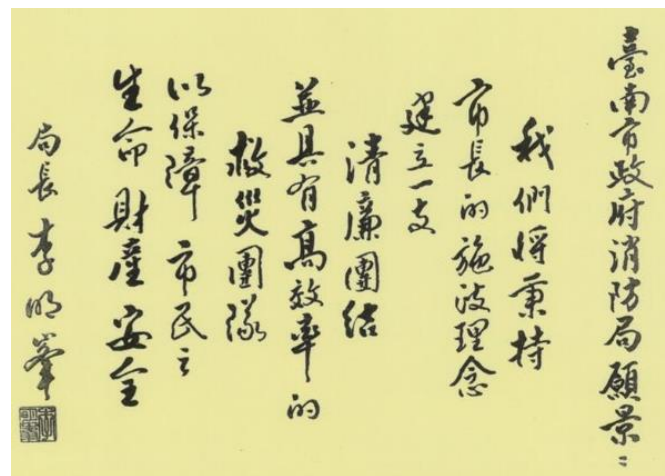 臺南市政府消防局願景:
我們將秉持
市長的施政理念
建立一支
清廉團結
並具有高效率的
救災團隊
以保障 市民之
生命財產安全
局長 李明峯